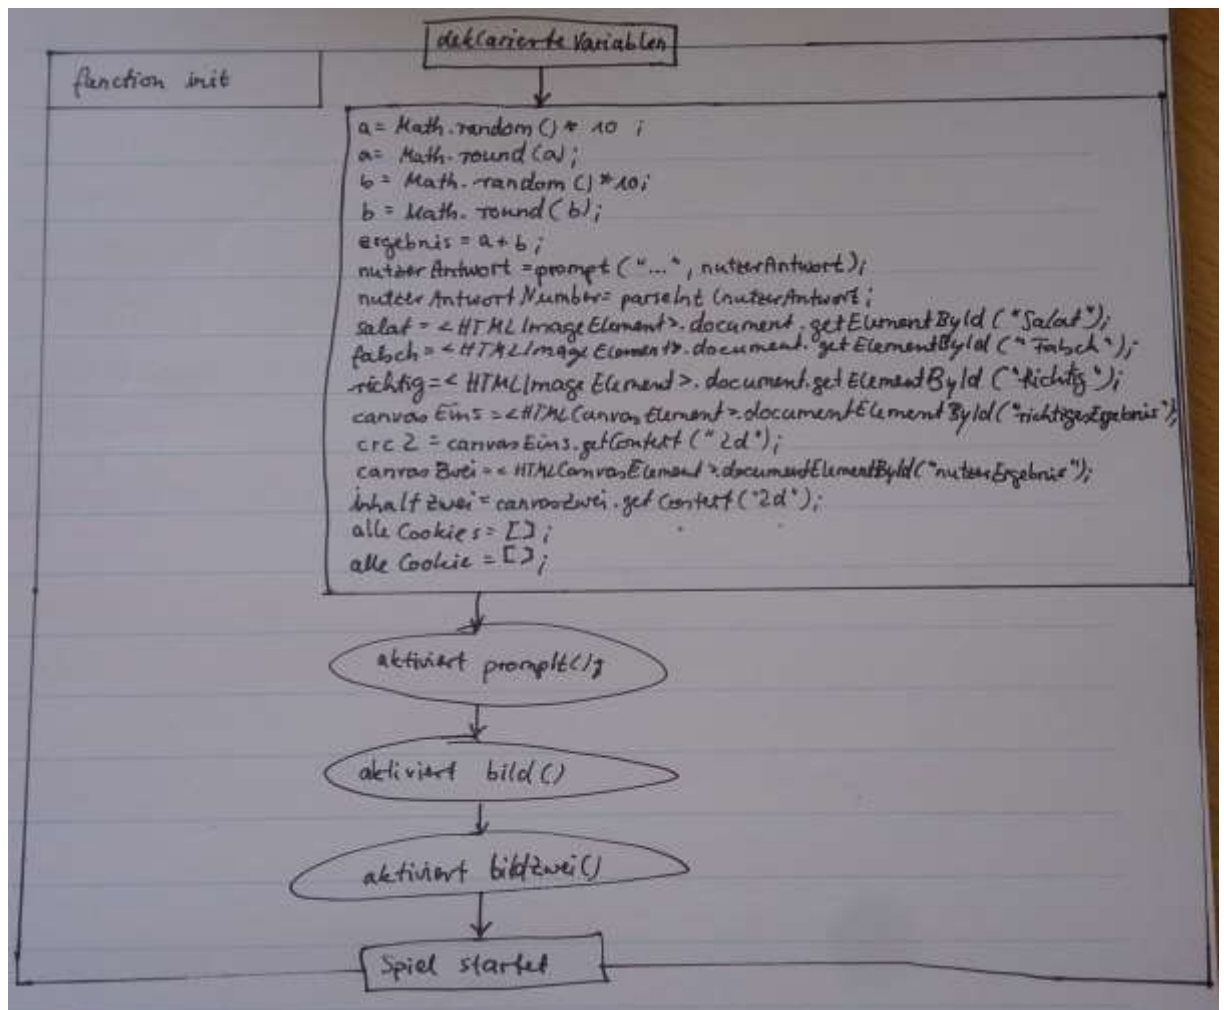 deklarierte Variablen
function init
a = Math.random() * 10 ;
a = Math.round(a);
b = Math.random() * 10;
b = Math.round(b);
ergebnis = a + b ;
nutzer Antwort = prompt ("...", nutzerAntwort);
nutzer Antwort Number = parseInt (nutzerAntwort;
salat = <HTMLImageElement>.document.getElementById ("Salat");
falsch = <HTMLImageElement>.document.getElementById ("Falsch");
richtig = <HTMLImageElement>.document.getElementById ("Richtig");
canvas Eins = <HTMLCanvasElement>.documentElementById ("richtigesErgebnis");
crc 2 = canvasEins.getContext ("2d");
canvas Zwei = <HTMLCanvasElement>.documentElementById("nutzerErgebnis");
inhalt zwei = canvaszwei.getContext ("2d");
alle Cookies = [];
alle Cookie = [];
aktiviert promptt();
aktiviert bild()
aktiviert bildzwei()
Spiel startet